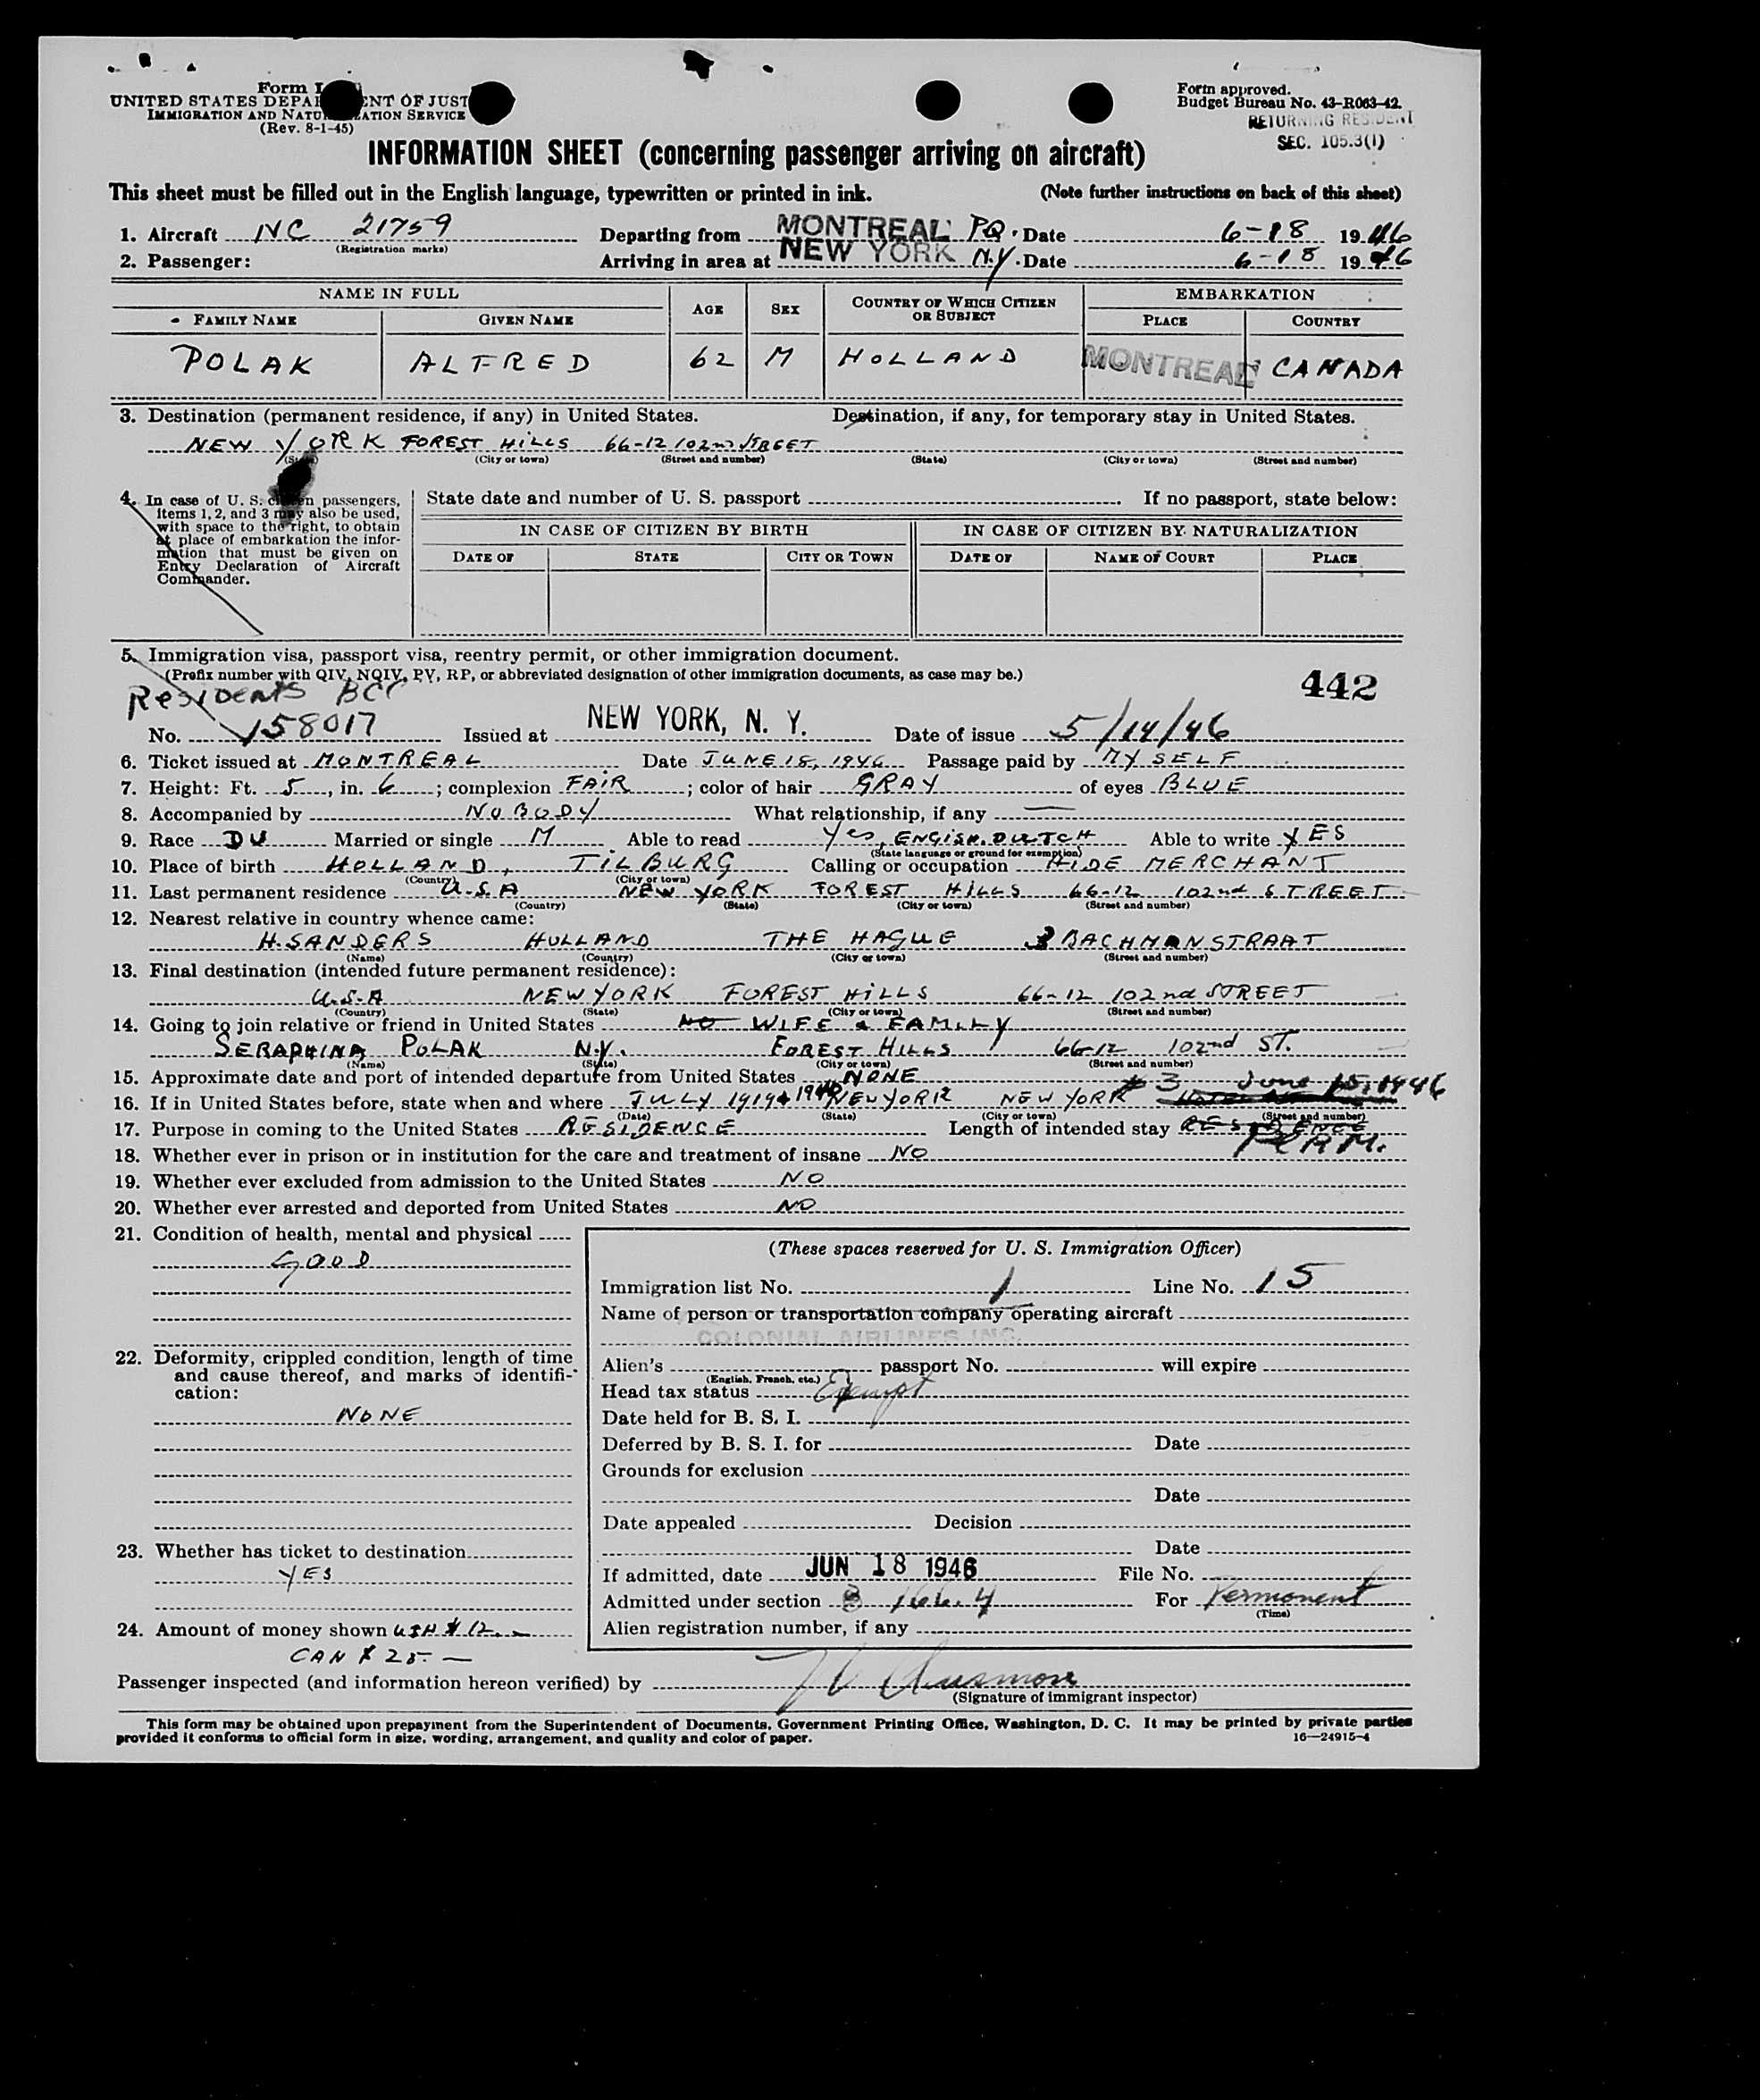 Form I
UNITED STATES DEPA ENT OF JUST
IMMIGRATION AND NATU ATION SERVICE
(Rev. 8-1-45)
Form approved.
Budget Bureau No. 43-R063-42.
RETURNING RESIDENT
SEC. 105.3(1)
INFORMATION SHEET (concerning passenger arriving on aircraft)
This sheet must be filled out in the English language, typewritten or printed in ink. (Note further instructions on back of this sheet)
1. Aircraft NC 21759 Departing from MONTREAL PQ. Date 6-18 1946
(Registration marks)
2. Passenger: Arriving in area at NEW YORK N.Y. Date 6-18 1946
NAME IN FULL AGE SEX COUNTRY OF WHICH CITIZEN OR SUBJECT EMBARKATION
FAMILY NAME GIVEN NAME PLACE COUNTRY
POLAK ALFRED 62 M HOLLAND MONTREAL CANADA
3. Destination (permanent residence, if any) in United States. Destination, if any, for temporary stay in United States.
NEW YORK FOREST HILLS 66-12 102nd STREET
(State) (City or town) (Street and number) (State) (City or town) (Street and number)
4. In case of U. S. citizen passengers, items 1, 2, and 3 may also be used, with space to the right, to obtain at place of embarkation the information that must be given on Entry Declaration of Aircraft Commander.
State date and number of U. S. passport . If no passport, state below:
IN CASE OF CITIZEN BY BIRTH IN CASE OF CITIZEN BY NATURALIZATION
DATE OF STATE CITY OR TOWN DATE OF NAME OF COURT PLACE
5. Immigration visa, passport visa, reentry permit, or other immigration document.
(Prefix number with QIV, NQIV, PV, RP, or abbreviated designation of other immigration documents, as case may be.) 442
Residents BCC
No. 158017 Issued at NEW YORK, N. Y. Date of issue 5/14/46
6. Ticket issued at MONTREAL Date JUNE 18, 1946 Passage paid by MYSELF
7. Height: Ft. 5, in. 6; complexion FAIR; color of hair GRAY of eyes BLUE
8. Accompanied by NOBODY What relationship, if any —
9. Race DU Married or single M Able to read Yes, ENGISH. DUTCH Able to write YES
(State language or ground for exemption)
10. Place of birth HOLLAND, TILBURG Calling or occupation HIDE MERCHANT
(Country) (City or town)
11. Last permanent residence U.S.A NEW YORK FOREST HILLS 66-12 102nd STREET
(Country) (State) (City or town) (Street and number)
12. Nearest relative in country whence came:
H. SANDERS HOLLAND THE HAGUE 3 BACHMANSTRAAT
(Name) (Country) (City or town) (Street and number)
13. Final destination (intended future permanent residence):
U.S.A NEW YORK FOREST HILLS 66-12 102nd STREET
(Country) (State) (City or town) (Street and number)
14. Going to join relative or friend in United States NO WIFE & FAMILY
SERAPHINA POLAK N.Y. FOREST HILLS 66-12 102nd ST.
(Name) (State) (City or town) (Street and number)
15. Approximate date and port of intended departure from United States NONE
16. If in United States before, state when and where JULY 1919 + 1940 NEW YORK NEW YORK # 3 June 15, 1946
(Date) (State) (City or town) (Street and number)
17. Purpose in coming to the United States RESIDENCE Length of intended stay RESIDENCE PERM.
18. Whether ever in prison or in institution for the care and treatment of insane NO
19. Whether ever excluded from admission to the United States NO
20. Whether ever arrested and deported from United States NO
21. Condition of health, mental and physical
GOOD
22. Deformity, crippled condition, length of time and cause thereof, and marks of identification:
NONE
23. Whether has ticket to destination
YES
24. Amount of money shown USA $ 12.—
CAN $ 25.—
(These spaces reserved for U. S. Immigration Officer)
Immigration list No. 1 Line No. 15
Name of person or transportation company operating aircraft
COLONIAL AIRLINES INC.
Alien's passport No. will expire
(English, French, etc.)
Head tax status Exempt
Date held for B. S. I.
Deferred by B. S. I. for Date
Grounds for exclusion
Date
Date appealed Decision
Date
If admitted, date JUN 18 1946 File No.
Admitted under section 3 166.4 For Permanent
(Time)
Alien registration number, if any
Passenger inspected (and information hereon verified) by
(Signature of immigrant inspector)
This form may be obtained upon prepayment from the Superintendent of Documents, Government Printing Office, Washington, D. C. It may be printed by private parties
provided it conforms to official form in size, wording, arrangement, and quality and color of paper. 16—24915-4